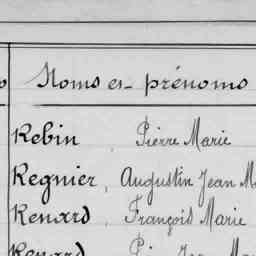 Noms et prénoms
Rebin, Pierre Marie
Regnier, Augustin Jean M
Renard, François Marie
Renard